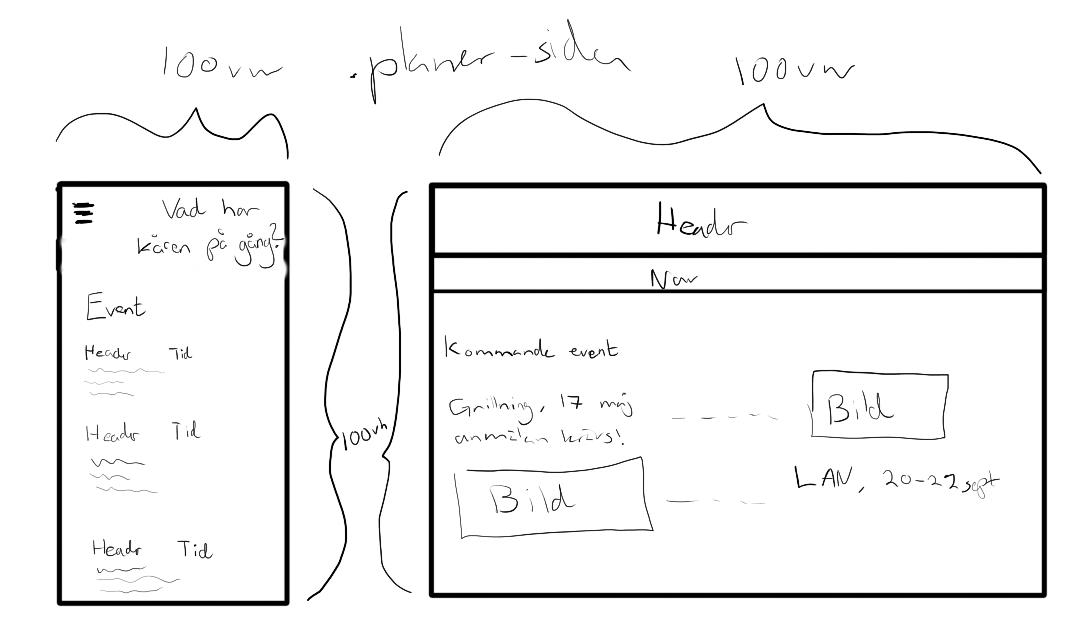 100vw
.planer-sidan
100vw
Vad har
kåren på gång?
Event
Header Tid
Header Tid
Header Tid
100vh
Header
Nav
Kommande event
Grillning, 17 maj
anmälan krävs!
Bild
Bild
LAN, 20-22 sept